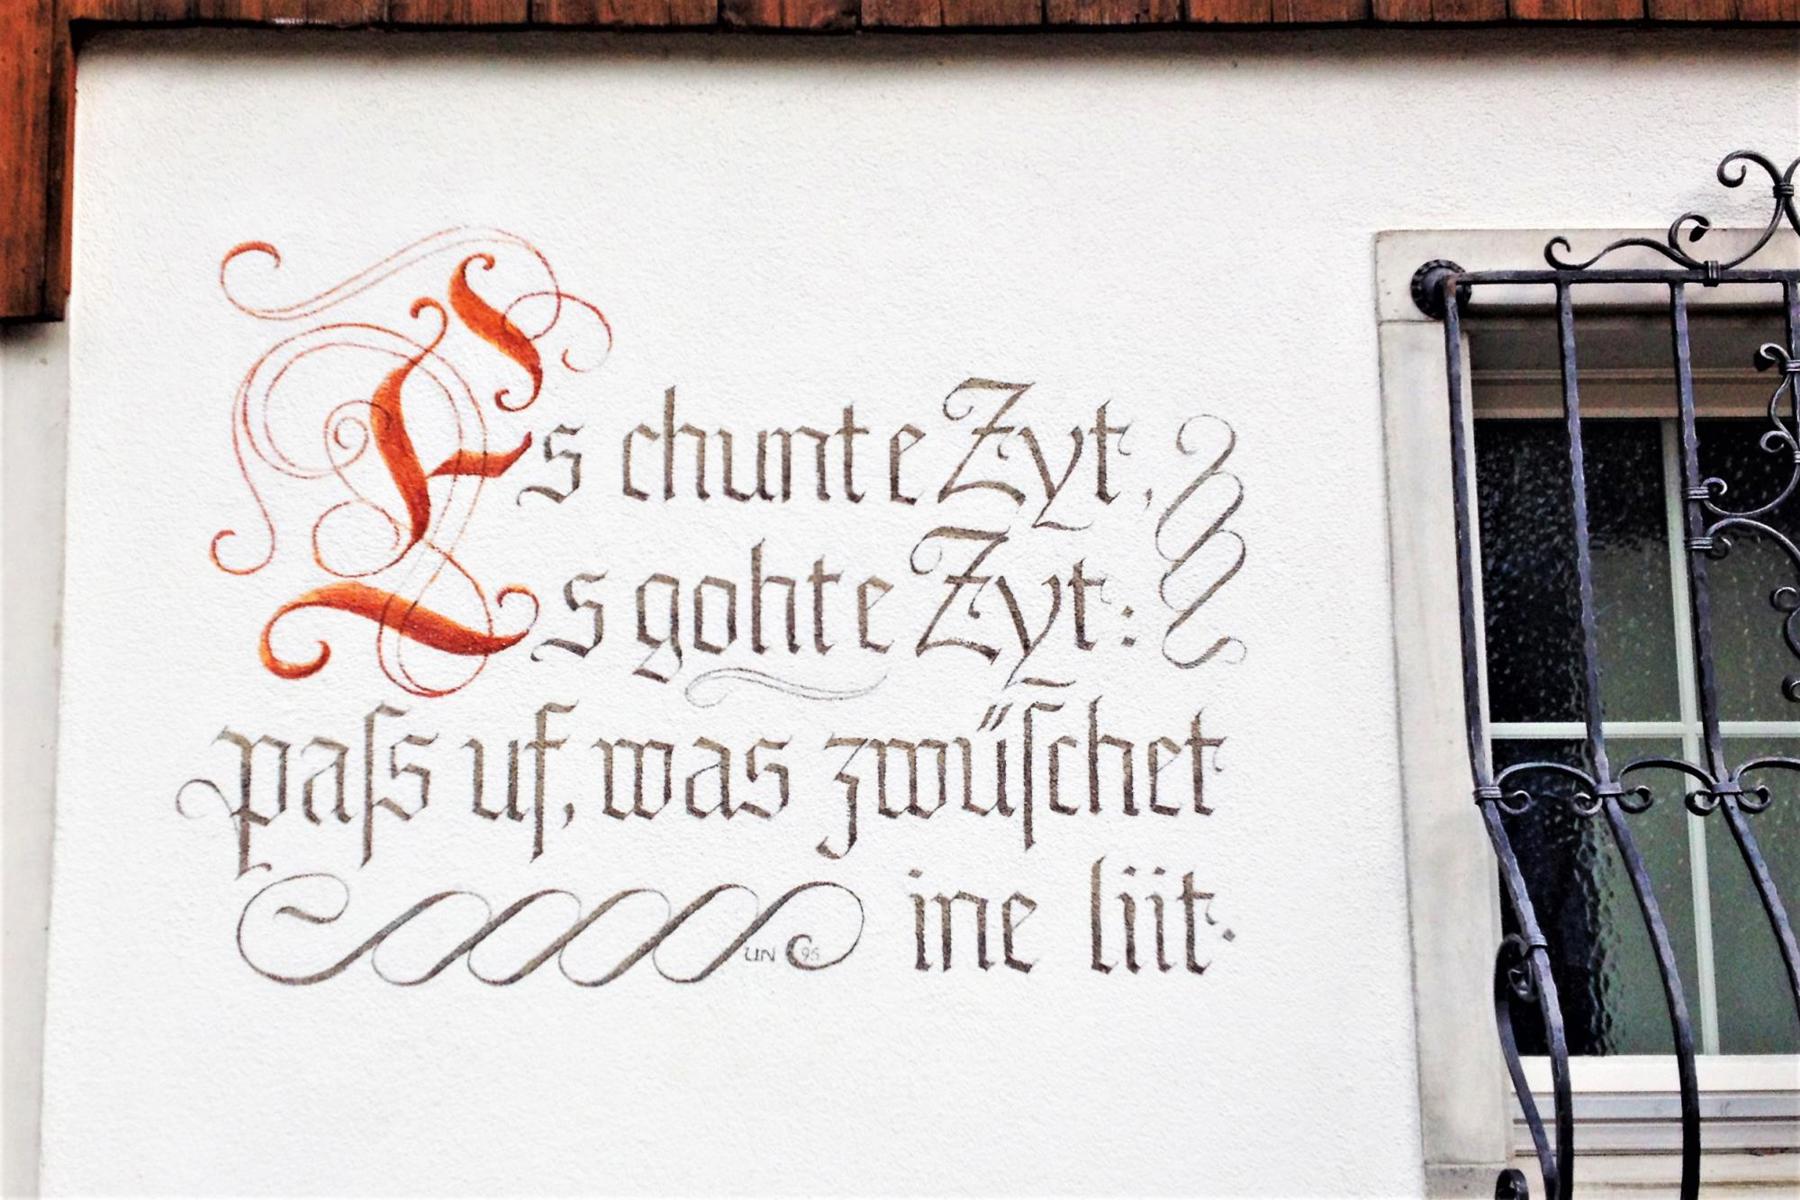 Es chunt e Zyt,
Es goht e Zyt:
paſs uf, was zwüſchet
ine liit.
UN 95